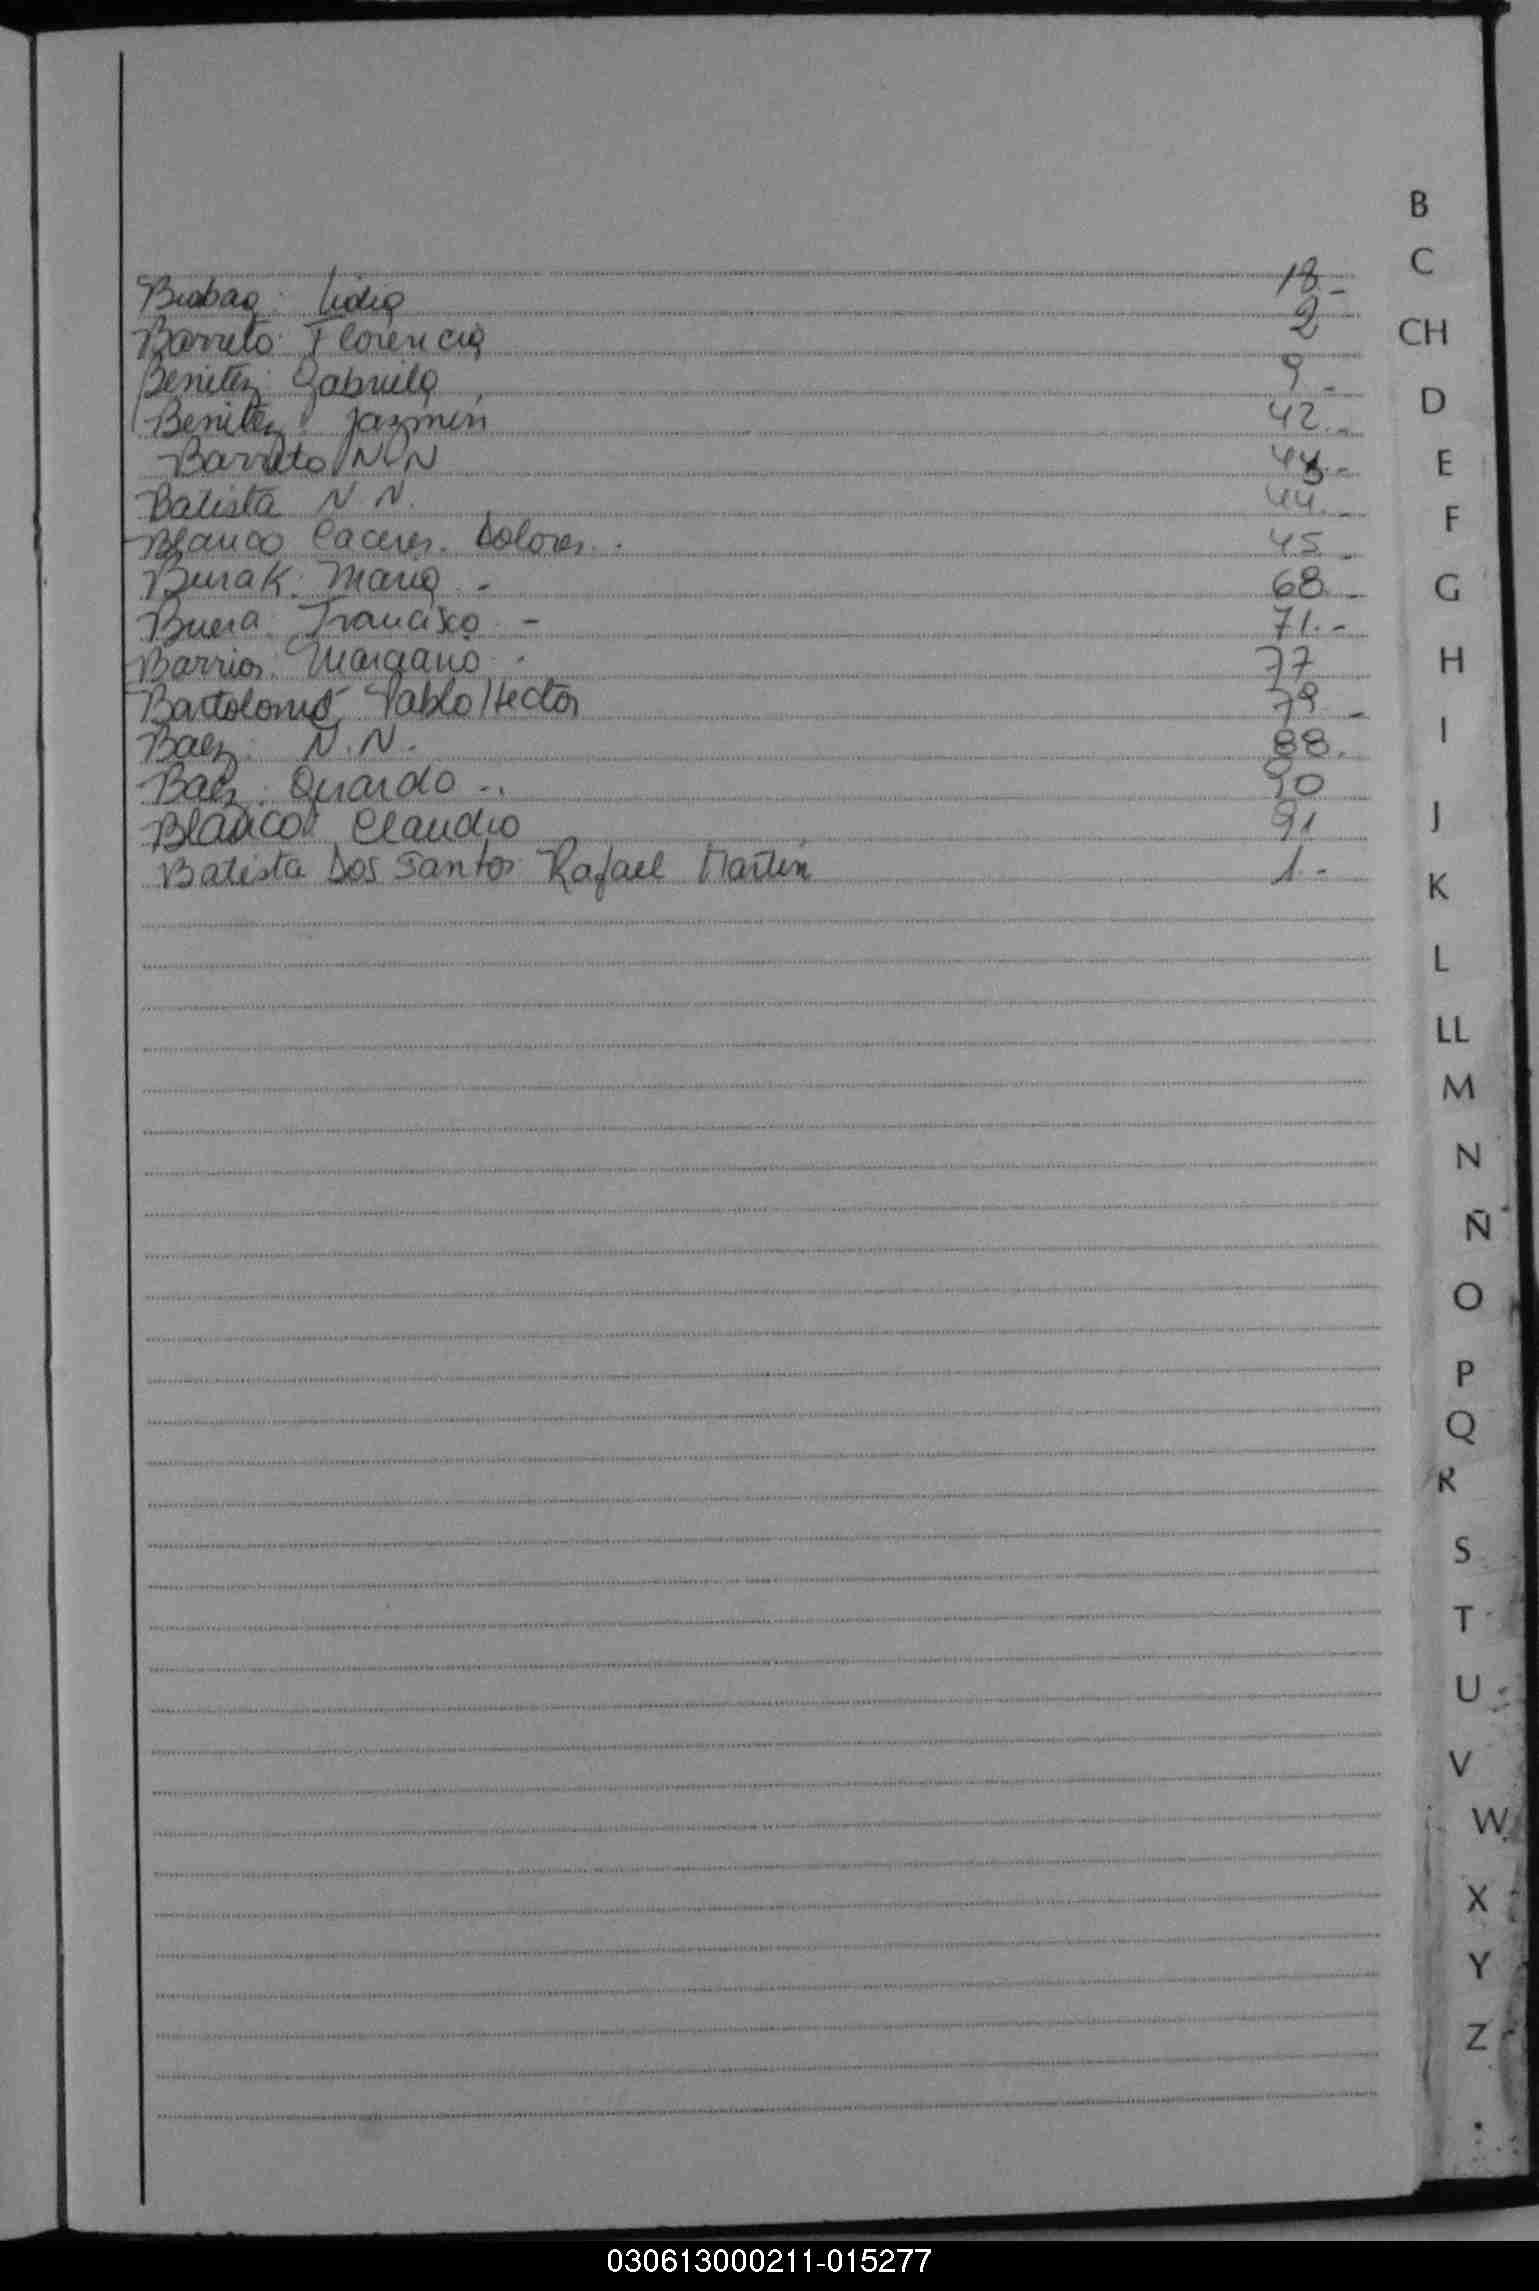 B
C
Lidia 18.-
Barreto: Florencia 2
CH
Benitez: Gabriela 9.-
D
Benitez: Jazmin 42.-
Barreto N.N
E
Batista N N. 44.-
F
Blanco Caceres. Dolores. 45.-
Burak. Maria.- 68.-
G
Francisco.- 71.-
Barrios: Marciano. 77
H
Bartolomé, Pablo Hector 79.-
I
Baez: N.N. 88.
Baez. 90
J
Blanco Claudio 91
Batista Dos Santos Rafael Martin 1.-
K
L
LL
M
N
Ñ
O
P
Q
R
S
T
U
V
W
X
Y
Z
030613000211-015277